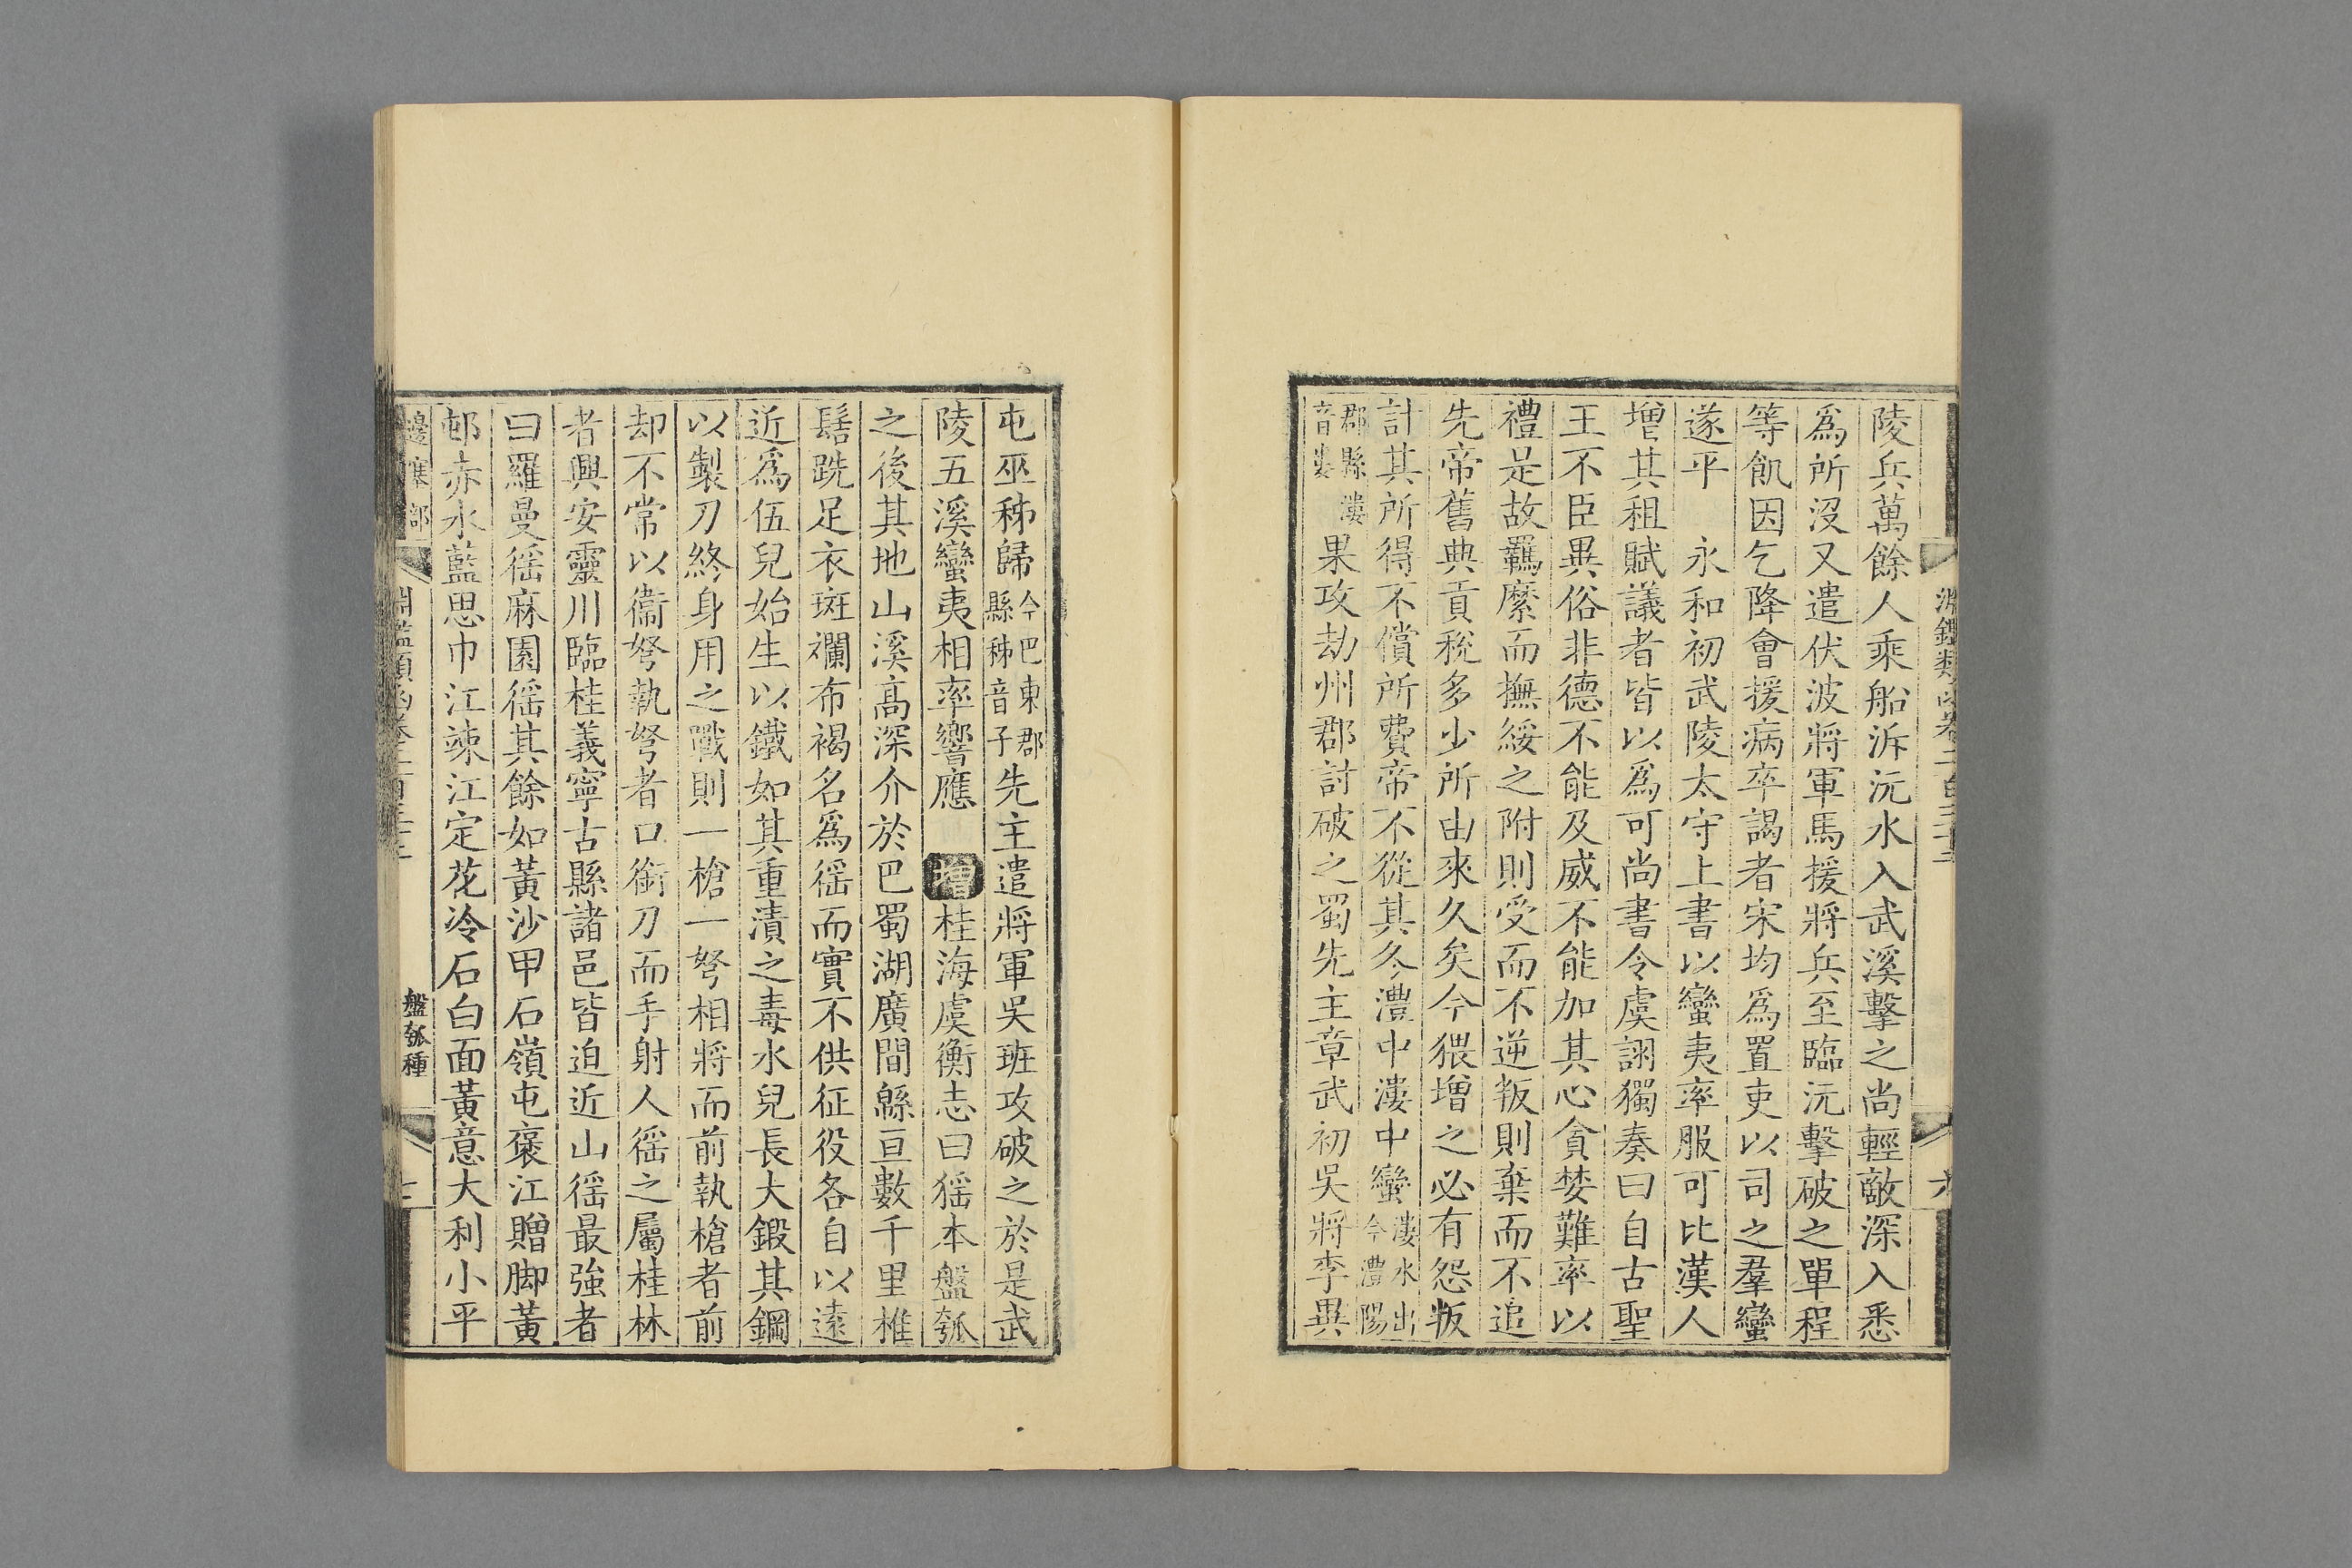 陵兵萬餘人乘船泝沅水入武溪擊之尚輕敵深入悉
爲所沒又遣伏波將軍馬援將兵至臨沅擊破之單程
等飢因乞降會援病卒謁者宋均爲置吏以司之羣蠻
遂平　永和初武陵太守上書以蠻夷率服可比漢人
增其租賦議者皆以爲可尚書令虞詡獨奏曰自古聖
王不臣異俗非德不能及威不能加其心貪婪難率以
禮是故羈縻而撫綏之附則受而不逆叛則棄而不追
先帝舊典貢稅多少所由來久矣今猥增之必有怨叛
計其所得不償所費帝不從其冬澧中漊中蠻漊水出今澧陽
郡縣漊音婁果攻劫州郡討破之蜀先主章武初吳將李異
屯巫秭歸今巴東郡縣秭音子先主遣將軍吳班攻破之於是武
陵五溪蠻夷相率響應　增桂海虞衡志曰猺本盤瓠
之後其地山溪高深介於巴蜀湖廣間緜亘數千里椎
髻跣足衣斑斕布褐名爲徭而實不供征役各自以遠
近爲伍兒始生以鐵如其重漬之毒水兒長大鍛其鋼
以製刀終身用之戰則一槍一弩相將而前執槍者前
却不常以衞弩執弩者口銜刀而手射人徭之屬桂林
者興安靈川臨桂義寧古縣諸邑皆迫近山徭最強者
曰羅曼徭麻園徭其餘如黃沙甲石嶺屯褒江贈脚黃
邨赤水藍思巾江竦江定花冷石白面黃意大利小平
邊塞部
淵鑑類函卷二百三十三
盤瓠種